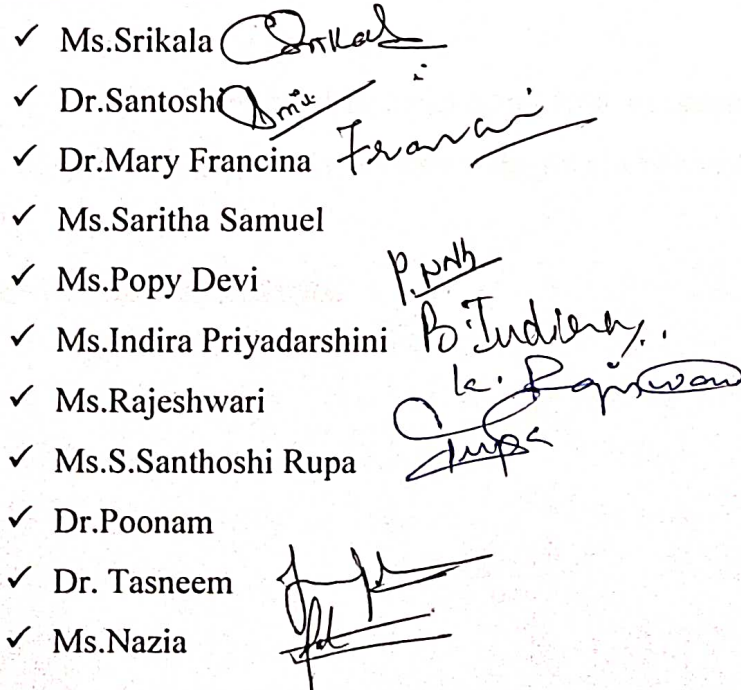 ✓ Ms.Srikala Srikal
✓ Dr.Santoshi
✓ Dr.Mary Francina
✓ Ms.Saritha Samuel
✓ Ms.Popy Devi
✓ Ms.Indira Priyadarshini B.Indira
✓ Ms.Rajeshwari K.
✓ Ms.S.Santhoshi Rupa Rupa
✓ Dr.Poonam
✓ Dr. Tasneem
✓ Ms.Nazia